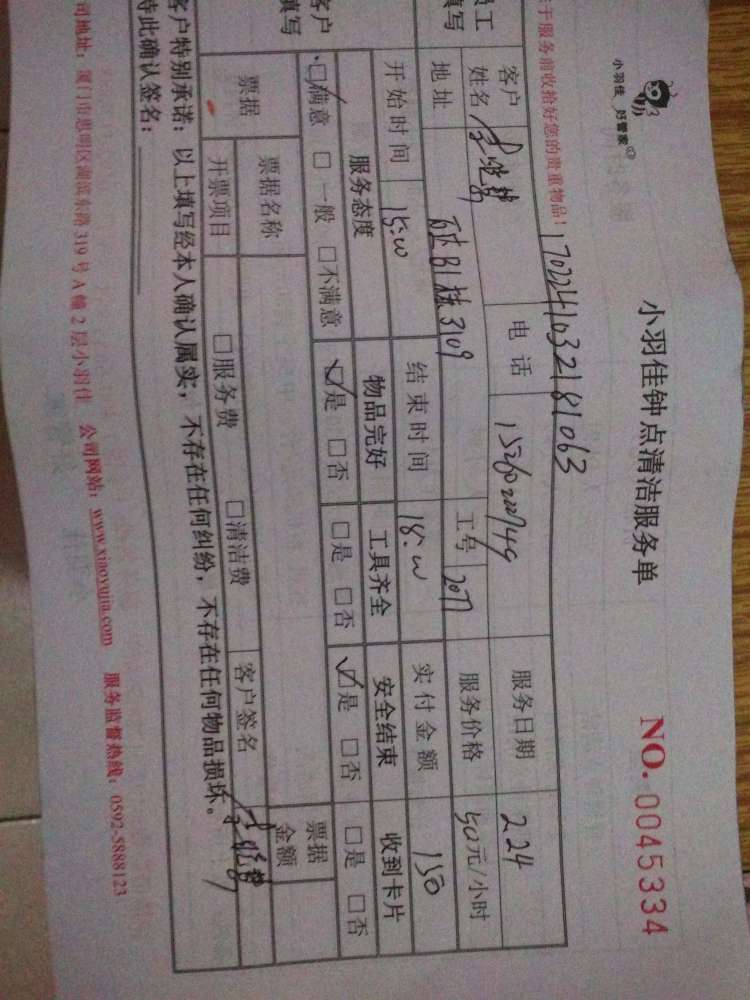 小羽佳 好管家
小羽佳钟点清洁服务单
NO. 0045334
于服务前收拾好您的贵重物品！
1702241032181063
员工
填写
客户
姓名
电话
服务日期
224
地址
B1栋3109
工号
2077
服务价格
50元/小时
开始时间
15:00
结束时间
18:00
实付金额
150
客户
填写
服务态度
物品完好
工具齐全
安全结束
收到卡片
☑满意 □一般 □不满意
☑是 □否
□是 □否
☑是 □否
□是 □否
票据
票据名称
票据
金额
开票项目
□服务费
□清洁费
客户签名
客户特别承诺：以上填写经本人确认属实，不存在任何纠纷，不存在任何物品损坏。
特此确认签名：
司地址：厦门市思明区湖滨东路319号A幢2层小羽佳 公司网站：www.xiaoyujia.com 服务监督热线：0592-5888123